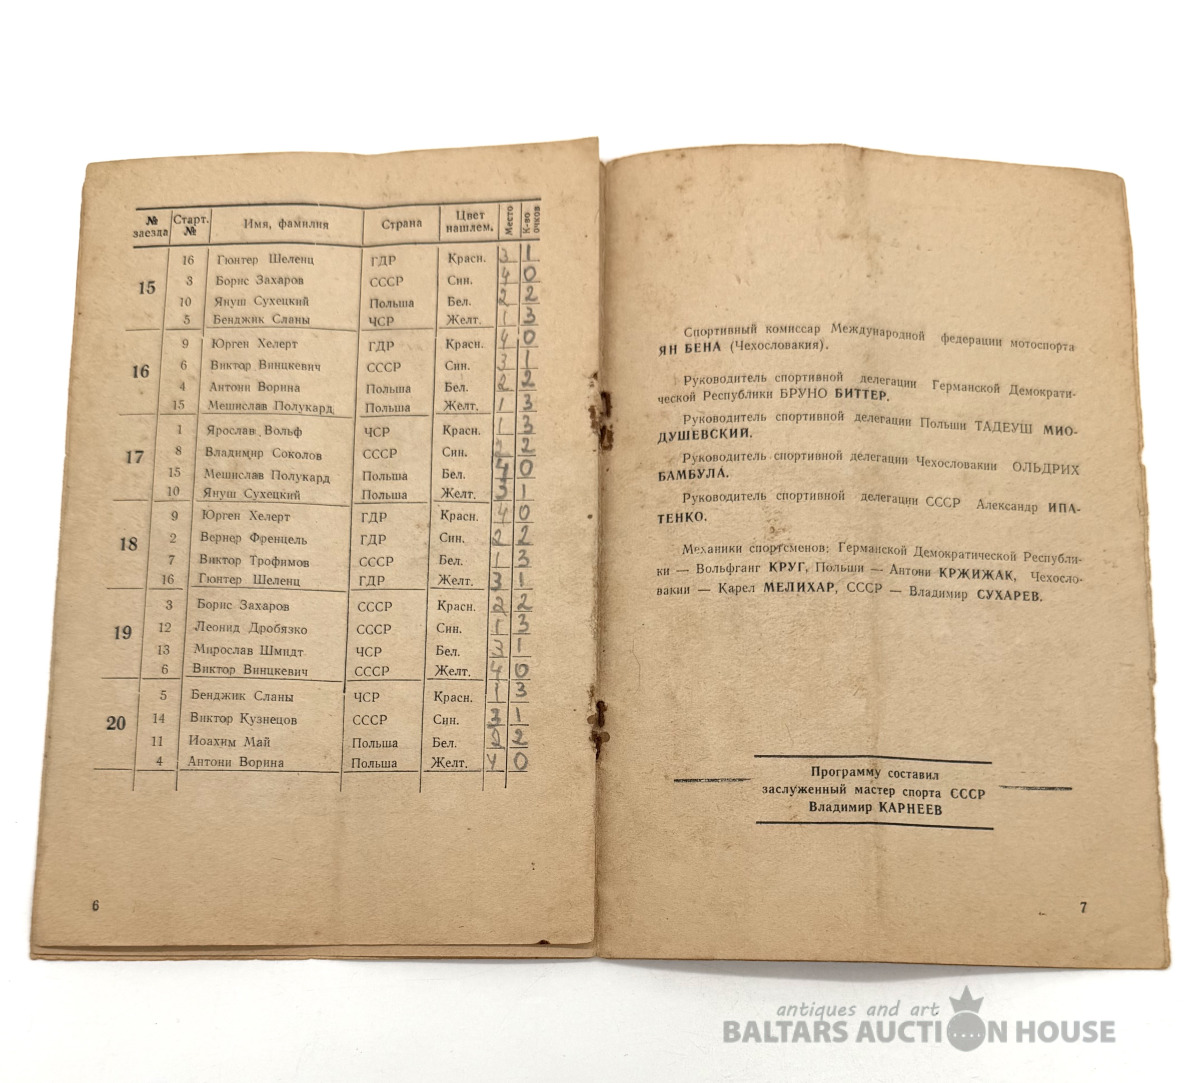 № заезда Старт. № Имя, фамилия Страна Цвет нашлем. Место К-во очков
15
16 Гюнтер Шеленц ГДР Красн. 3 1
3 Борис Захаров СССР Син. 4 0
10 Януш Сухецкий Польша Бел. 2 2
5 Бенджик Сланы ЧСР Желт. 1 3
16
9 Юрген Хелерт ГДР Красн. 4 0
6 Виктор Винцкевич СССР Син. 3 1
4 Антони Ворина Польша Бел. 2 2
15 Мешислав Полукард Польша Желт. 1 3
17
1 Ярослав Вольф ЧСР Красн. 1 3
8 Владимир Соколов СССР Син. 2 2
15 Мешислав Полукард Польша Бел. 4 0
10 Януш Сухецкий Польша Желт. 3 1
18
9 Юрген Хелерт ГДР Красн. 4 0
2 Вернер Френцель ГДР Син. 2 2
7 Виктор Трофимов СССР Бел. 1 3
16 Гюнтер Шеленц ГДР Желт. 3 1
19
3 Борис Захаров СССР Красн. 2 2
12 Леонид Дробязко СССР Син. 1 3
13 Мирослав Шмидт ЧСР Бел. 3 1
6 Виктор Винцкевич СССР Желт. 4 0
20
5 Бенджик Сланы ЧСР Красн. 1 3
14 Виктор Кузнецов СССР Син. 3 1
11 Иоахим Май Польша Бел. 2 2
4 Антони Ворина Польша Желт. 4 0
6
Спортивный комиссар Международной федерации мотоспорта
ЯН БЕНА (Чехословакия).
Руководитель спортивной делегации Германской Демократи-
ческой Республики БРУНО БИТТЕР.
Руководитель спортивной делегации Польши ТАДЕУШ МИО-
ДУШЕВСКИЙ.
Руководитель спортивной делегации Чехословакии ОЛЬДРИХ
БАМБУЛА.
Руководитель спортивной делегации СССР Александр ИПА-
ТЕНКО.
Механики спортсменов: Германской Демократической Республи-
ки — Вольфганг КРУГ, Польши — Антони КРЖИЖАК, Чехосло-
вакии — Карел МЕЛИХАР, СССР — Владимир СУХАРЕВ.
Программу составил
заслуженный мастер спорта СССР
Владимир КАРНЕЕВ
7
antiques and art
BALTARS AUCTION HOUSE